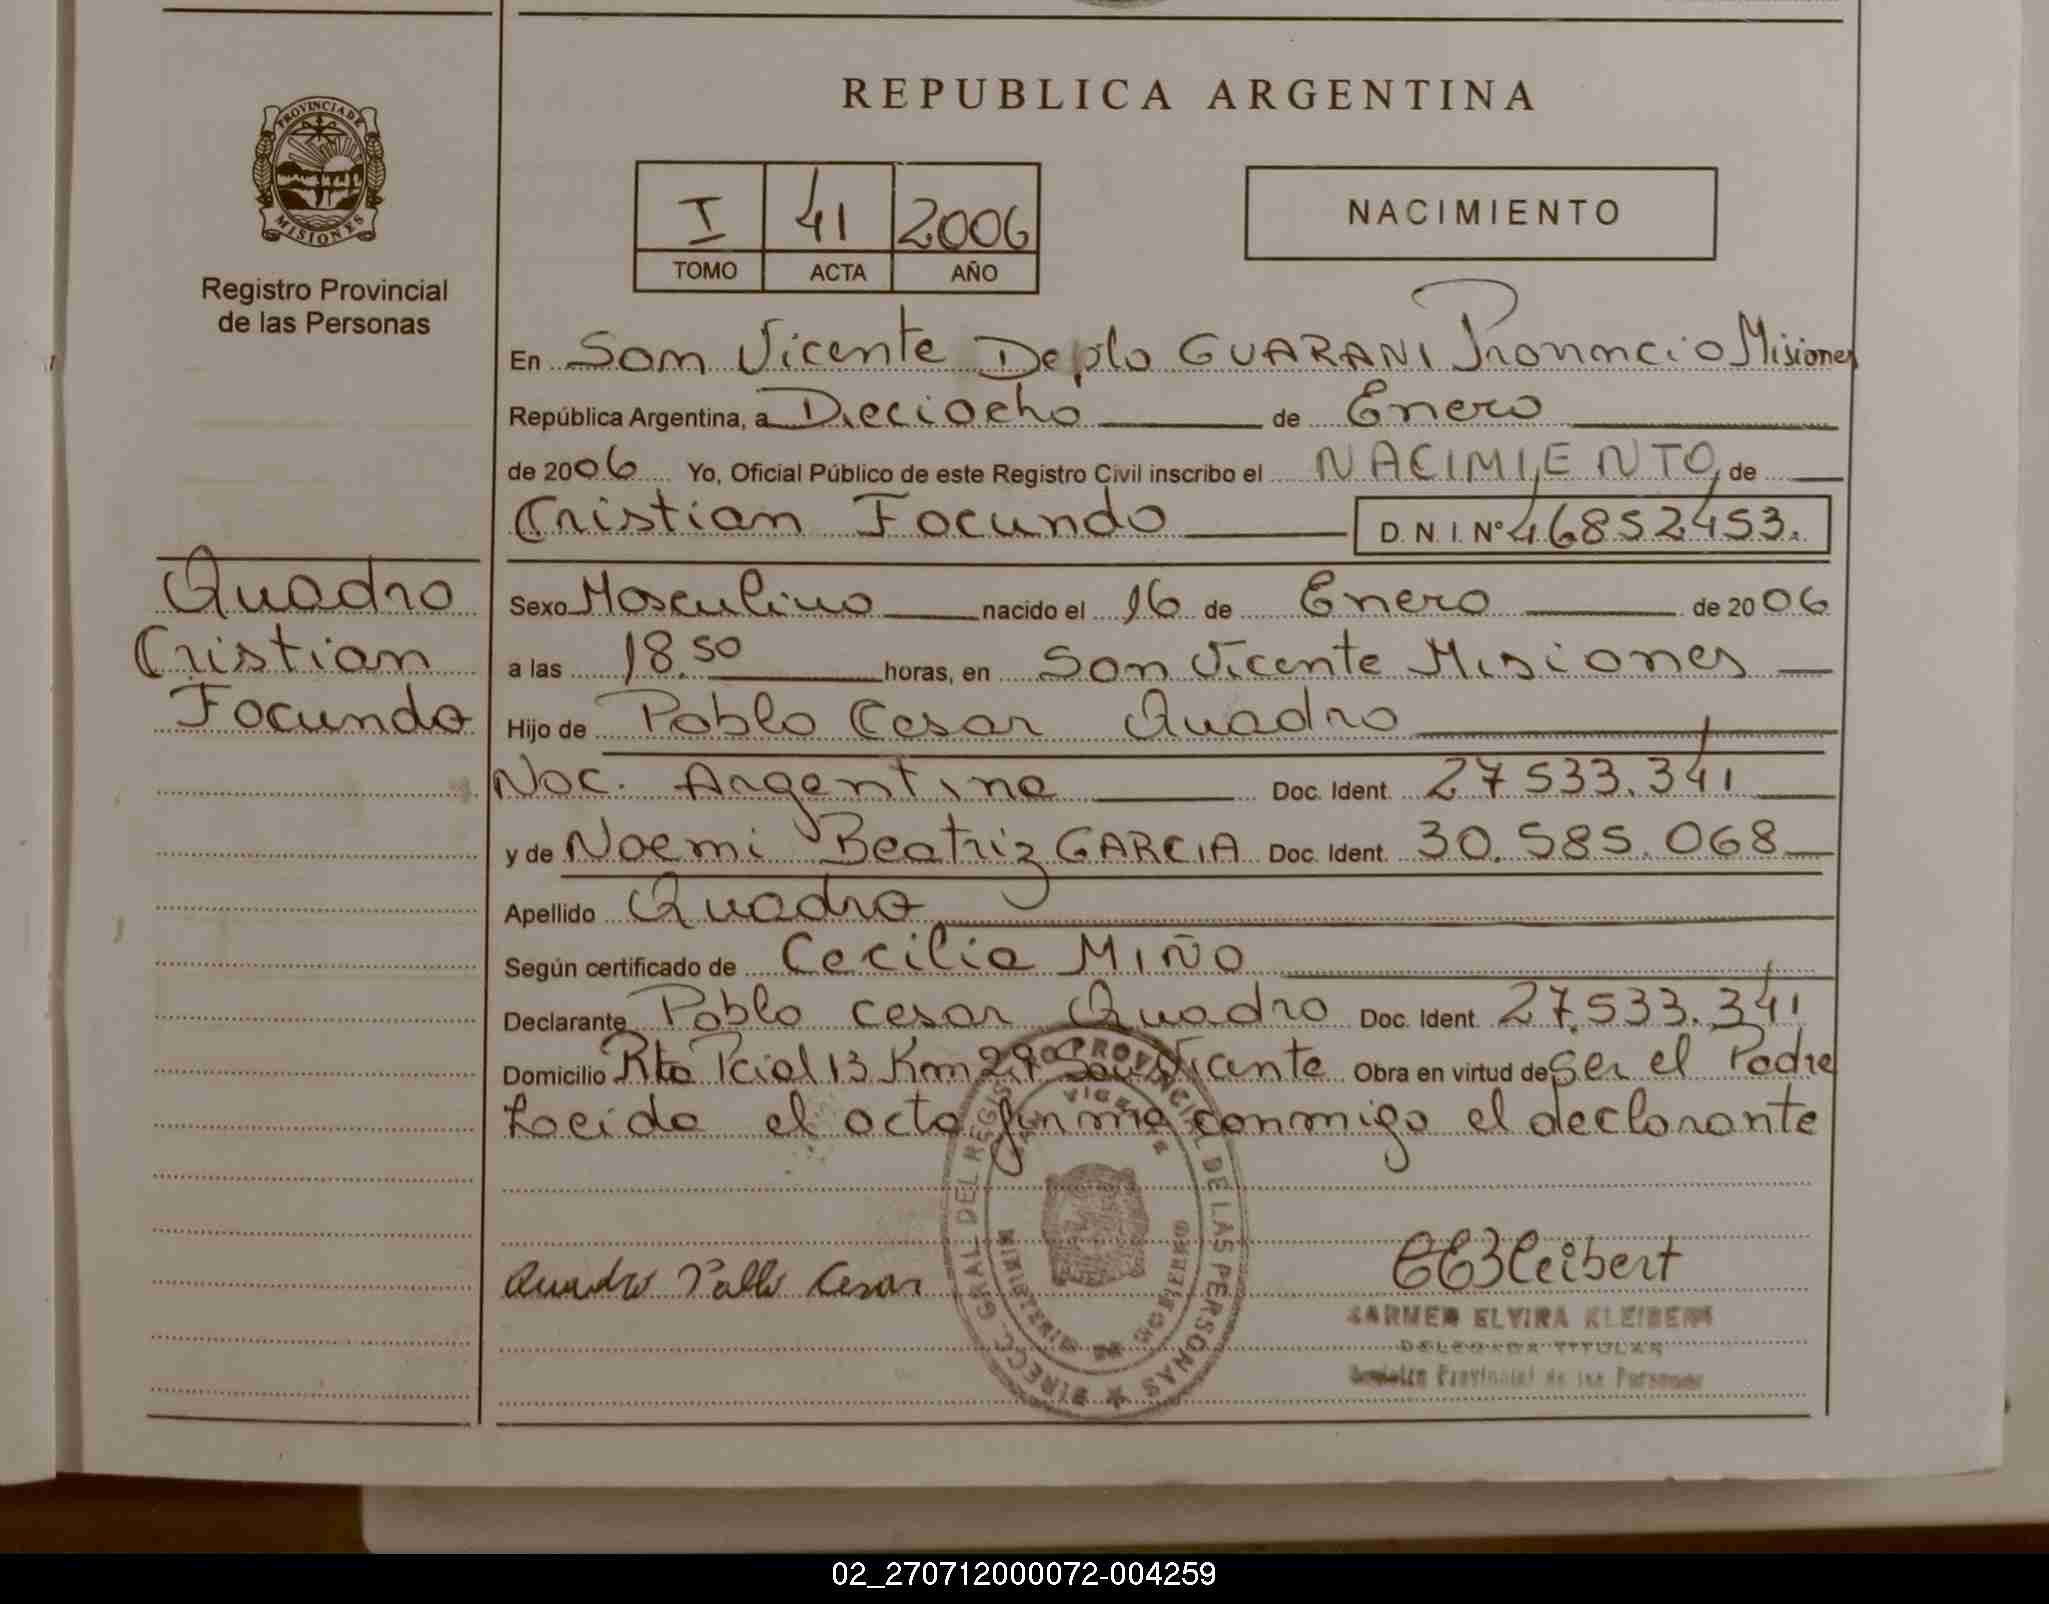 REPUBLICA ARGENTINA
PROVINCIA DE
MISIONES
Registro Provincial
de las Personas
I 41 2006
TOMO ACTA AÑO
NACIMIENTO
En San Vicente Depto GUARANI Provincia Misiones
República Argentina, a Dieciocho de Enero
de 2006 Yo, Oficial Público de este Registro Civil inscribo el NACIMIENTO, de
Cristian Facundo D.N.I. Nº 46852453.
Quadro
Cristian
Facundo
Sexo Masculino nacido el 16 de Enero de 2006
a las 18.50 horas, en San Vicente Misiones
Hijo de Pablo Cesar Quadro
Nac. Argentina Doc. Ident. 27533.341
y de Noemi Beatriz GARCIA Doc. Ident. 30.585.068
Apellido Quadro
Según certificado de Cecilia MIÑO
Declarante Pablo Cesar Quadro Doc. Ident. 27.533.341
Domicilio Rta Pcial 13 Km 29 San Vicente Obra en virtud de Ser el Padre
Leida el acta firma conmigo el declarante
Quadro Pablo Cesar
DIRECC. GRAL. DEL REGISTRO PROVINCIAL DE LAS PERSONAS
MINISTERIO DE GOBIERNO
CARMEN ELVIRA KLEIBERT
DELEGADA TITULAR
Provincial de las Personas
02_270712000072-004259